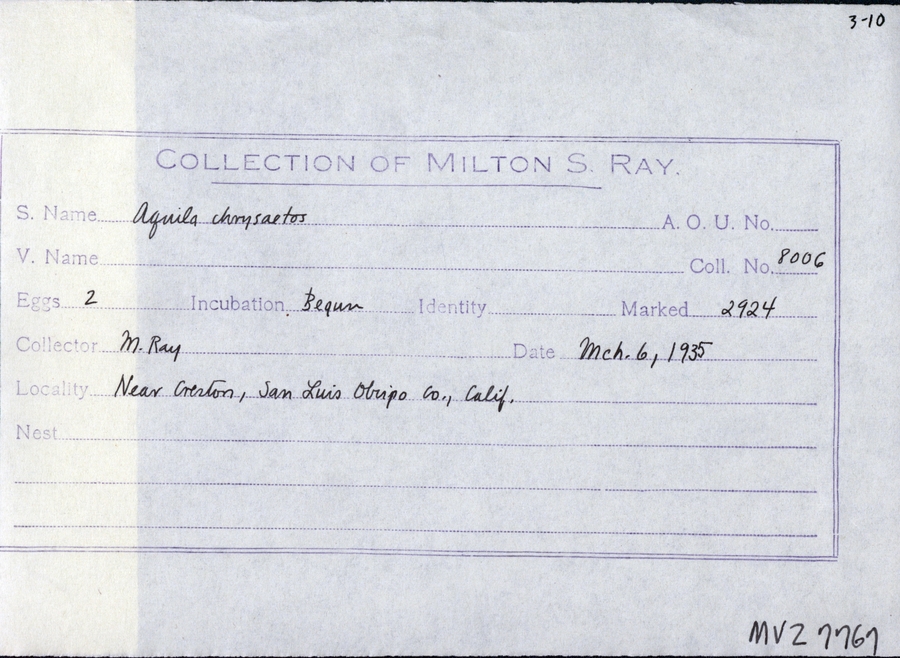 3-10
COLLECTION OF MILTON S. RAY.
S. Name Aquila chrysaetos A. O. U. No.
V. Name Coll. No. 8006
Eggs 2 Incubation Begun Identity Marked 2924
Collector M. Ray Date Mch. 6, 1935
Locality Near Creston, San Luis Obispo Co., Calif.
Nest
MVZ 7767